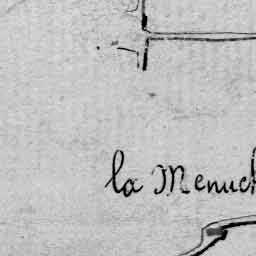 la Menuch